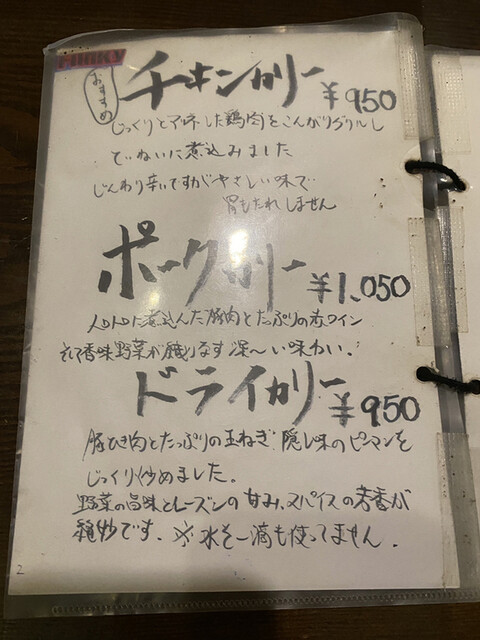 FUNKY
おすすめ
チキンカリー ¥950
じっくりとマリネした鶏肉をこんがりグリルし
ていねいに煮込みました
じんわり辛いですがやさしい味で
胃もたれしません
ポークカリー ¥1,050
トロトロに煮込んだ豚肉とたっぷりの赤ワイン
そして香味野菜が織りなす深〜い味わい.
ドライカリー ¥950
豚ひき肉とたっぷりの玉ねぎ.隠し味のピーマンを
じっくり炒めました。
野菜の旨味とレーズンの甘み、スパイスの芳香が
絶妙です. ※水を一滴も使ってません.
2